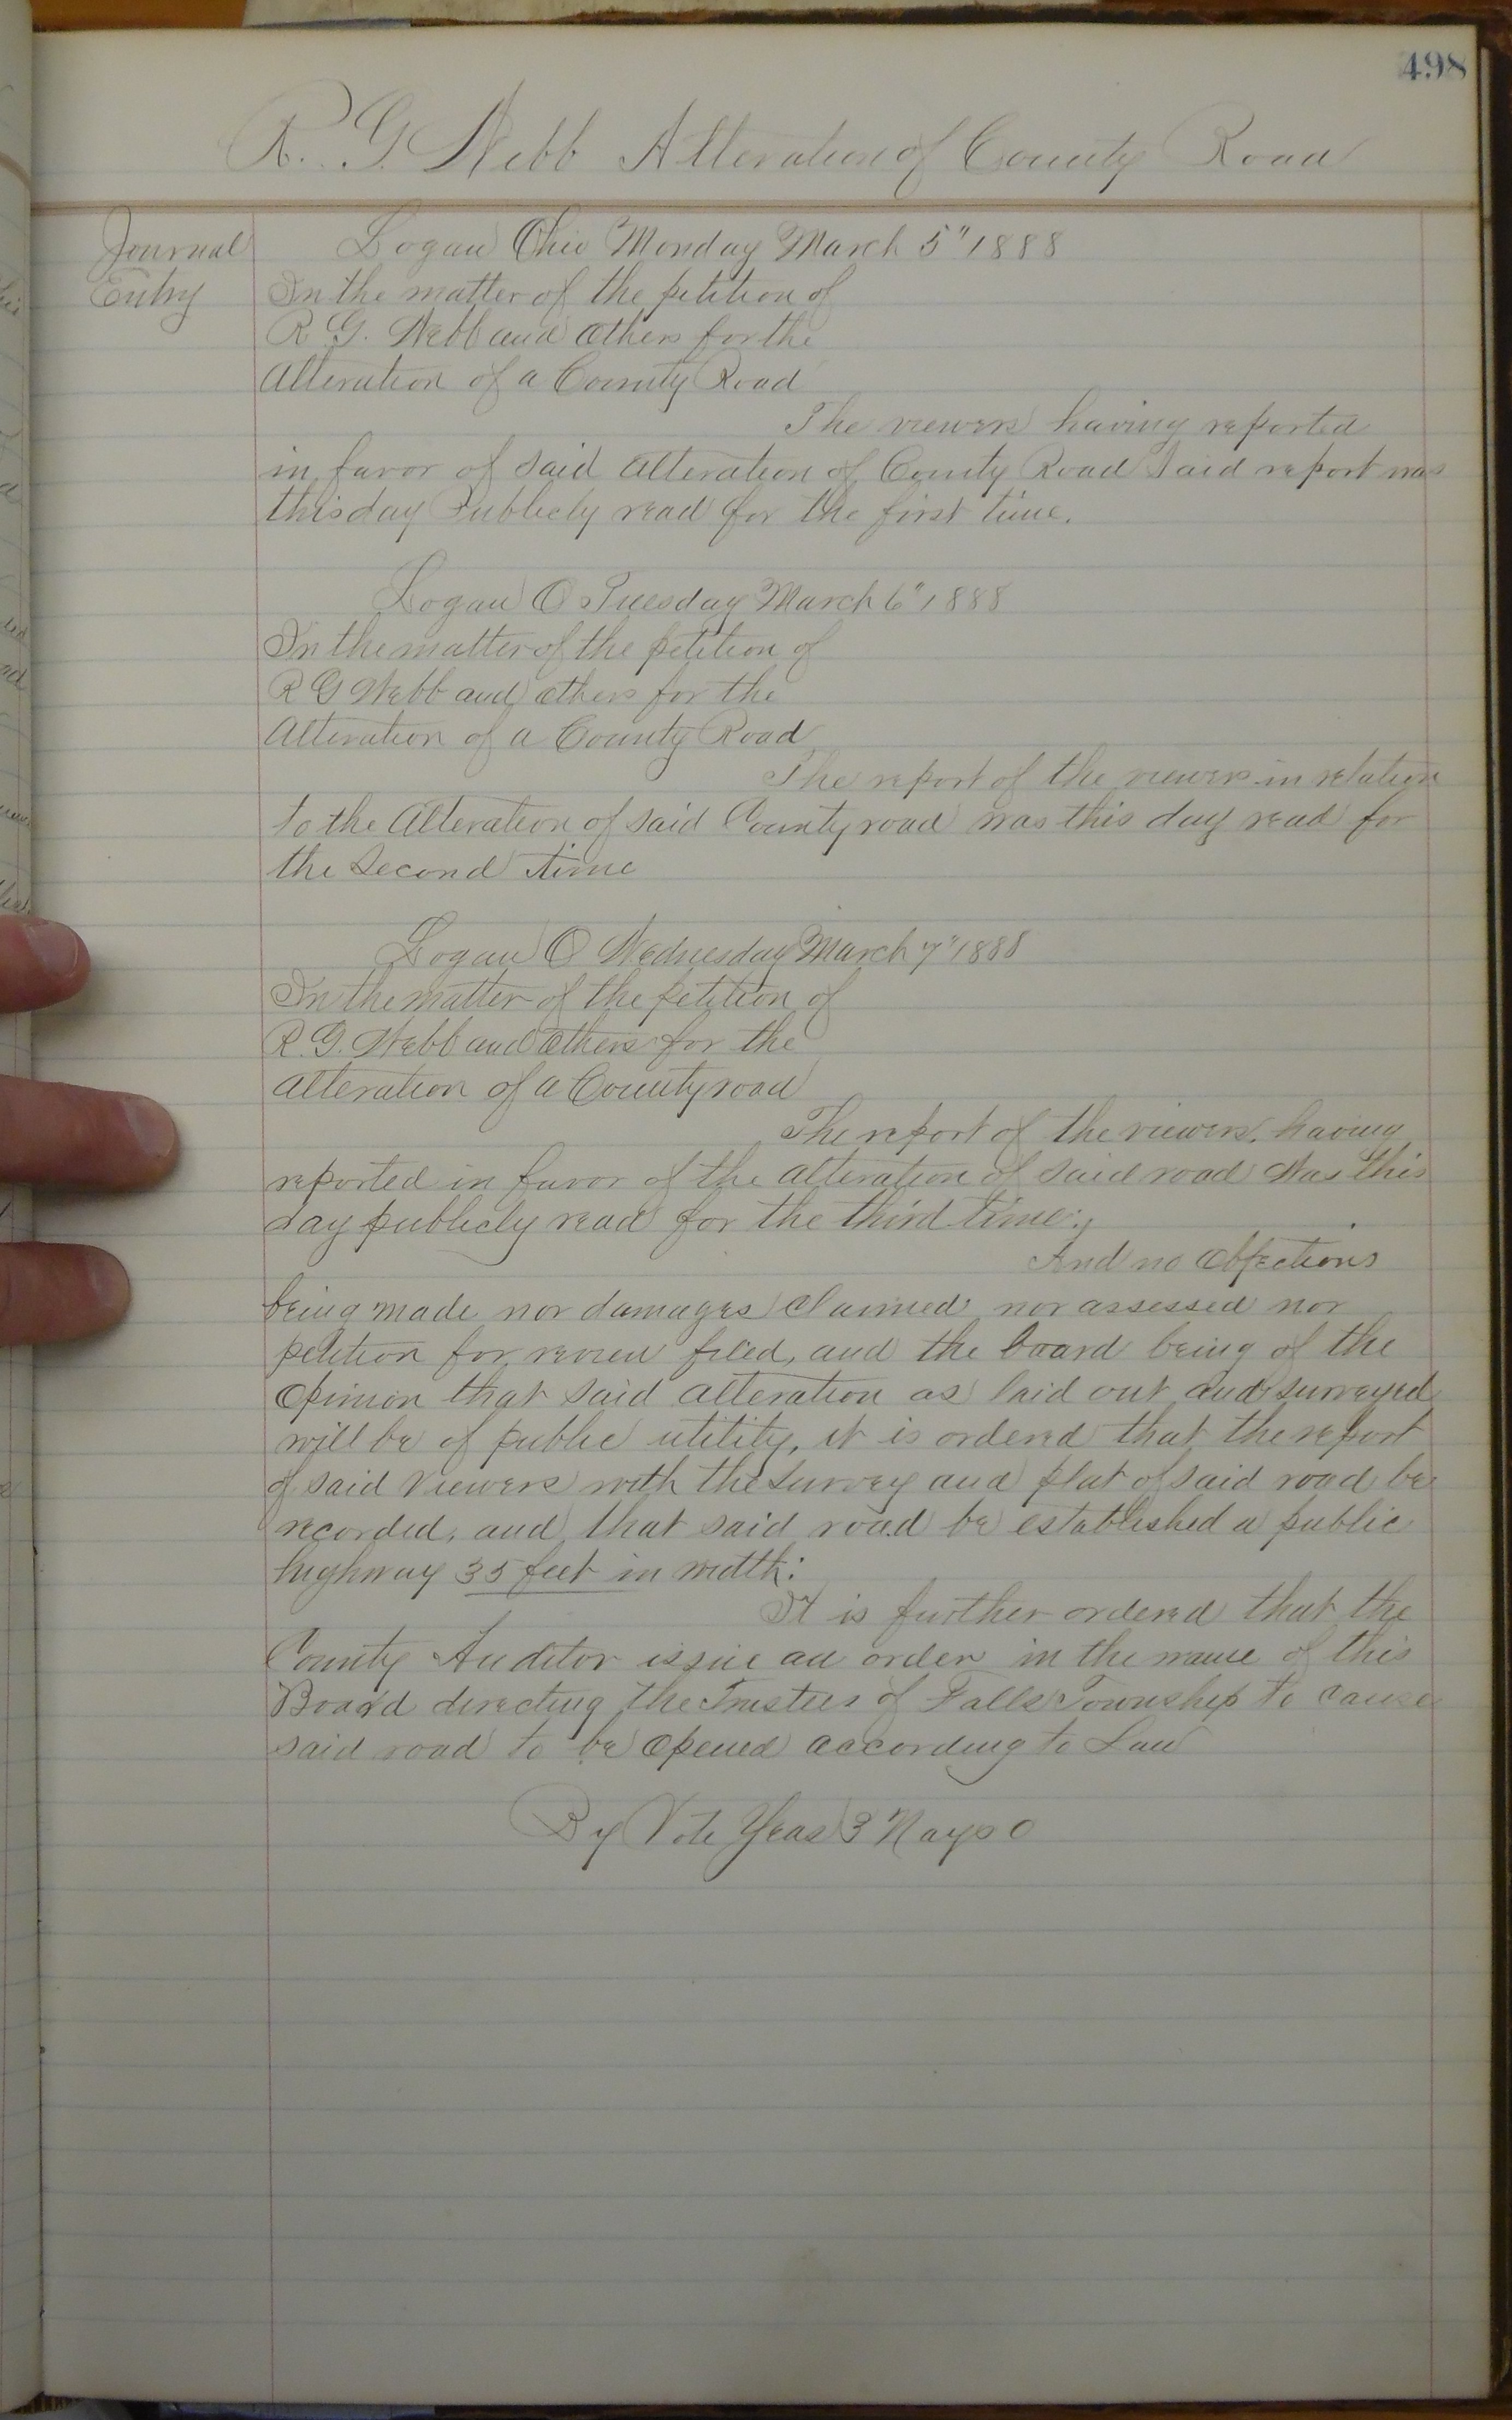 498
R. G. Webb Alteration of County Road
Journal Entry
Logan Ohio Monday March 5" 1888
In the matter of the petition of
R G. Webb and others for the
Alteration of a County Road
The viewers having reported
in favor of said Alteration of County Road Said report was
this day Publicly read for the first time.
Logan O Tuesday March 6" 1888
In the matter of the petition of
R G Webb and others for the
Alteration of a County Road
The report of the viewers in relation
to the Alteration of said County road was this day read for
the Second time
Logan O Wednesday March 7" 1888
In the matter of the petition of
R. G. Webb and Others for the
alteration of a County road
The report of the viewers, having
reported in favor of the alteration of said road was this
day publicly read for the third time.,
And no Objections
being made nor damages claimed nor assessed nor
petition for review filed, and the board being of the
Opinion that said alteration as laid out and surveyed
will be of public utility, it is ordered that the report
of said Viewers with the Survey and plat of said road be
recorded, and that said road be established a public
highway 35 feet in width:
It is further ordered that the
County Auditor issue an order in the name of this
Board directing the Trustees of Falls Township to cause
said road to be opened according to Law
By Vote Yeas 3 Nays 0